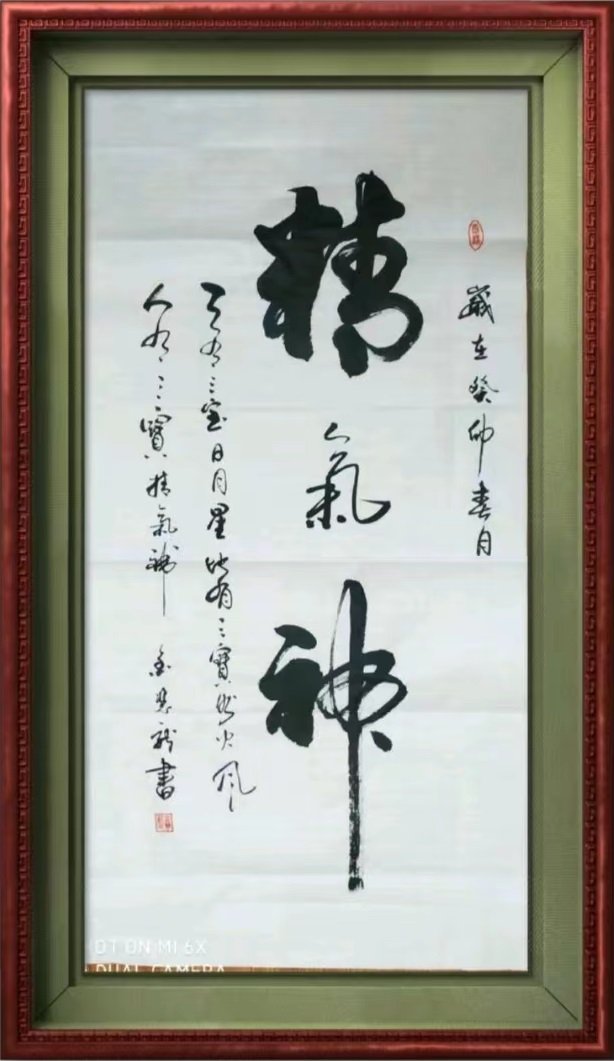 歲在癸卯春月
精氣神
天有三宝日月星地有三寶水火风
人有三寶精氣神
書
OT ON MI 6X
DUAL CAMERA